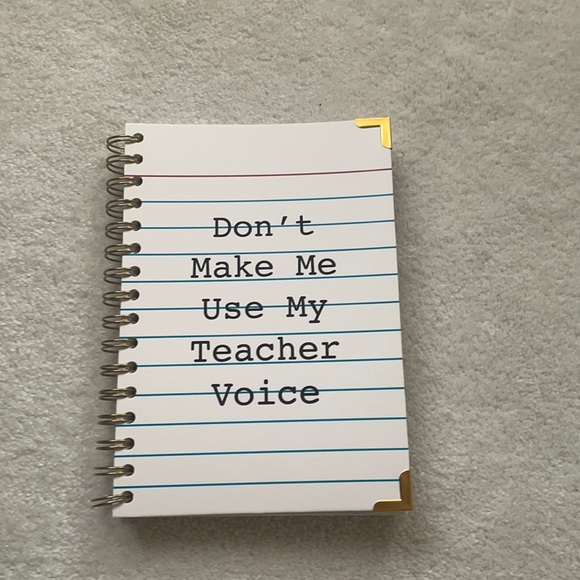 Don't
Make Me
Use My
Teacher
Voice